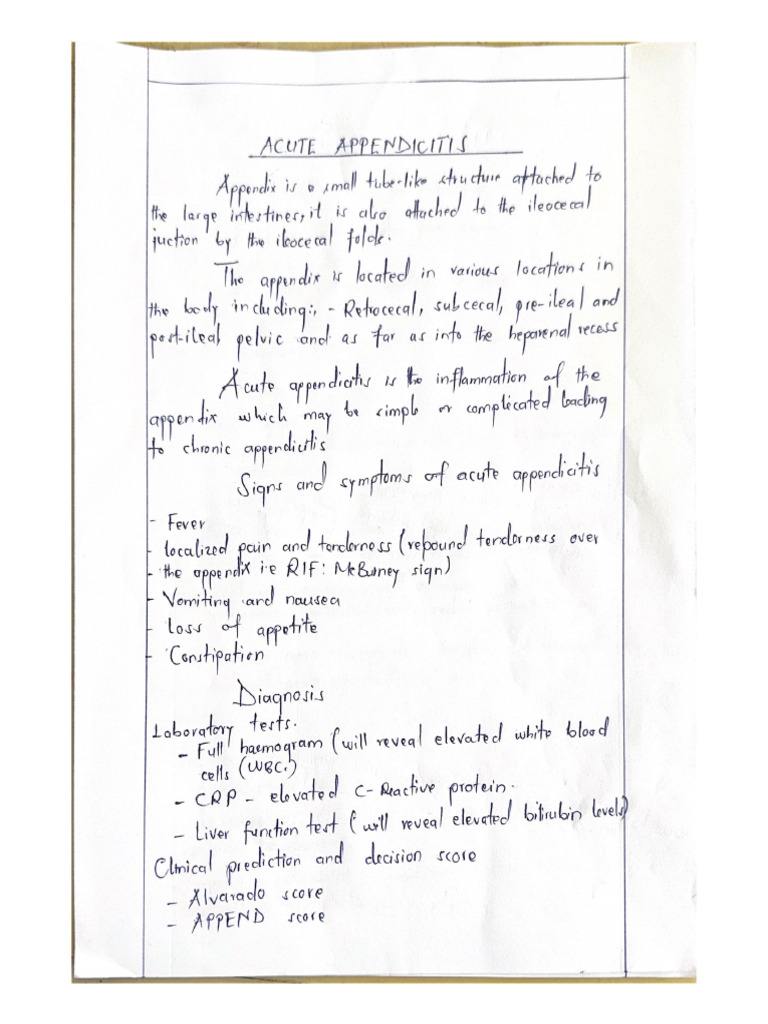 ACUTE APPENDICITIS
Appendix is a small tube-like structure attached to
the large intestines, it is also attached to the ileocecal
juction by the ileocecal folds.
The appendix is located in various locations in
the body including:, - Retrocecal, subcecal, pre-ileal and
post-ileal pelvic and as far as into the heparenal recess
Acute appendicitis is the inflammation of the
appendix which may be simple or complicated leading
to chronic appendicitis
Signs and symptoms of acute appendicitis
- Fever
- localized pain and tenderness (rebound tenderness over
- the appendix i.e RIF: McBurney sign)
- Vomiting and nausea
- Loss of appetite
- Constipation
Diagnosis
Laboratory tests.
- Full haemogram (will reveal elevated white blood
cells (WBC.)
- CRP - elevated C-Reactive protein.
- Liver function test (will reveal elevated bilirubin levels)
Clinical prediction and decision score
- Alvarado score
- APPEND score